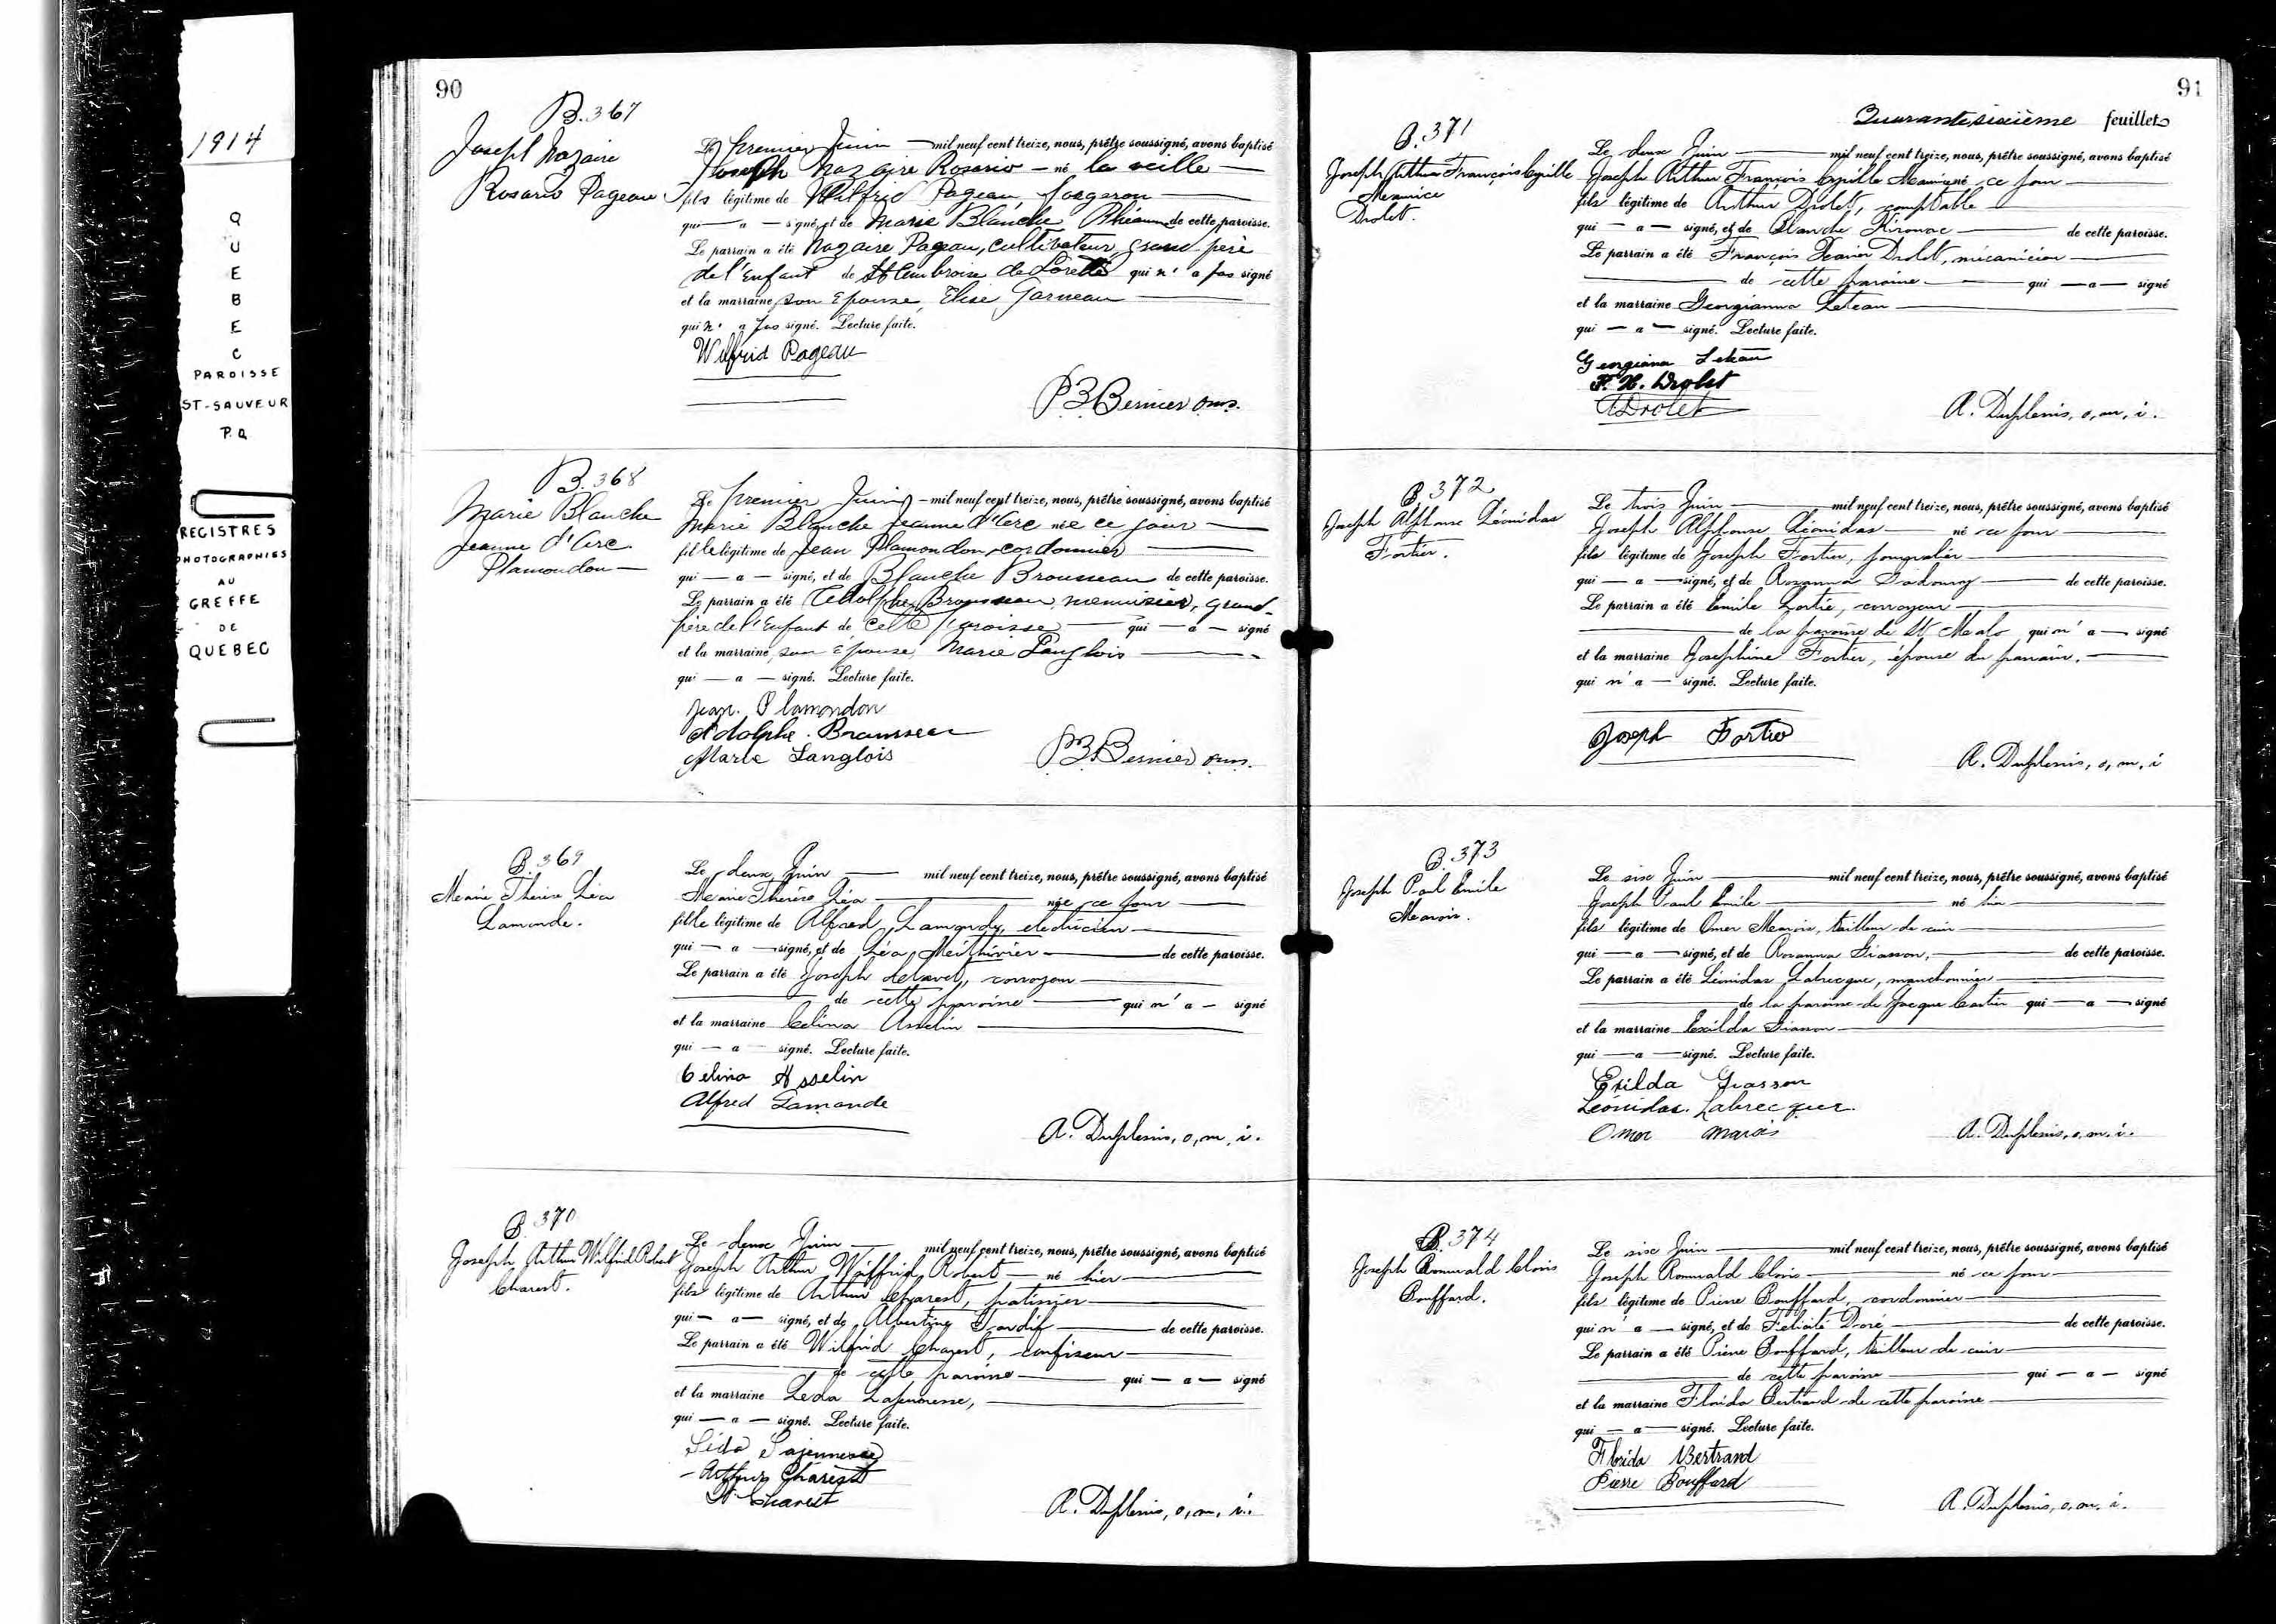 1914
QUEBEC
PAROISSE
ST-SAUVEUR
P.Q
REGISTRES
PHOTOGRAPHIES
AU
GREFFE
DE
QUEBEC
90
B.367
Joseph Nazaire
Rosario Pageau
Le premier Juin mil neuf cent treize, nous, prêtre soussigné, avons baptisé
Joseph Nazaire Rosario né la veille
fils légitime de Wilfrid Pageau, forgeron
qui a signé, et de Marie Blanche Rhéaume de cette paroisse.
Le parrain a été Nazaire Pageau, cultivateur, grand-père
de l'Enfant de St Ambroise de Lorette qui n'a pas signé
et la marraine son Epouse, Elise Garneau
qui n'a pas signé. Lecture faite.
Wilfrid Pageau
P.B. Bernier o.m.i.
B.368
Marie Blanche
Jeanne d'Arc
Plamondon
Le premier Juin mil neuf cent treize, nous, prêtre soussigné, avons baptisé
Marie Blanche Jeanne d'Arc née ce jour
fille légitime de Jean Plamondon, cordonnier
qui a signé, et de Blanche Brousseau de cette paroisse.
Le parrain a été Adolphe Brousseau, menuisier, grand-
père de l'Enfant de cette paroisse qui a signé
et la marraine, son épouse, Marie Langlois
qui a signé. Lecture faite.
Jean. Plamondon
Adolphe. Brousseau
Marie Langlois
P.B. Bernier o.m.i.
B.369
Marie Thérèse Léa
Lamonde.
Le deux Juin mil neuf cent treize, nous, prêtre soussigné, avons baptisé
Marie Thérèse Léa née ce jour
fille légitime de Alfred Lamonde, electricien
qui a signé, et de Léa Méthivier de cette paroisse.
Le parrain a été Joseph corroyeur
de cette paroisse qui n'a signé
et la marraine Celina Asselin
qui a signé. Lecture faite.
Celina Asselin
Alfred Lamonde
A. Duplenis, o, m, i.
B.370
Joseph Arthur Wilfrid Robert
Charest.
Le deux Juin mil neuf cent treize, nous, prêtre soussigné, avons baptisé
Joseph Arthur Wilffrid Robert né hier
fils légitime de Arthur Charest, patissier
qui a signé, et de Albertine Tardif de cette paroisse.
Le parrain a été Wilfrid Charest, confiseur
de cette paroisse qui a signé
et la marraine Leda Lajeunesse,
qui a signé. Lecture faite.
Léda Lajeunesse
Arthur Charest
W Charest
A. Duplenis, o, m, i.
91
Quarante sixième feuillet
B.371
Joseph Arthur François Cyrille
Maurice
Drolet.
Le deux Juin mil neuf cent treize, nous, prêtre soussigné, avons baptisé
Joseph Arthur François Cyrille né ce jour
fils légitime de Arthur Drolet, comptable
qui a signé, et de Blanche Kirouac de cette paroisse.
Le parrain a été François Xavier Drolet, mécanicien
de cette paroisse qui a signé
et la marraine Georgianna Leteau
qui a signé. Lecture faite.
Georgiana
F. X. Drolet
A Drolet
A. Duplenis, o, m, i.
B.372
Joseph Alphonse Léonidas
Fortier.
Le trois Juin mil neuf cent treize, nous, prêtre soussigné, avons baptisé
Joseph Alphonse Léonidas né ce jour
fils légitime de Joseph Fortier, journalier
qui a signé, et de Rozanna de cette paroisse.
Le parrain a été Emile Lortie, corroyeur
de la paroisse de St Malo, qui n'a signé
et la marraine Joséphine Fortier, épouse du parrain.
qui n'a signé. Lecture faite.
Joseph Fortier
A. Duplenis, o, m, i
B.373
Joseph Paul Emile
Marois.
Le six Juin mil neuf cent treize, nous, prêtre soussigné, avons baptisé
Joseph Paul Emile né hier
fils légitime de Omer Marois, tailleur de cuir
qui a signé, et de Rosanna Giasson, de cette paroisse.
Le parrain a été Léonidas Labrecque, manchonnier
de la paroisse de Jacque Cartier qui a signé
et la marraine Exilda Giasson
qui a signé. Lecture faite.
Exilda Giasson
Léonidas. Labrecque.
Omer Marois
A. Duplenis, o, m, i.
B.374
Joseph Romuald Clovis
Bouffard.
Le six Juin mil neuf cent treize, nous, prêtre soussigné, avons baptisé
Joseph Romuald Clovis né ce jour
fils légitime de Pierre Bouffard, cordonnier
qui n'a signé, et de Felicité Doré de cette paroisse.
Le parrain a été Pierre Bouffard, tailleur de cuir
de cette paroisse qui a signé
et la marraine Florida Bertrand de cette paroisse
qui a signé. Lecture faite.
Florida Bertrand
Pierre Bouffard
A. Duplenis, o, m, i.